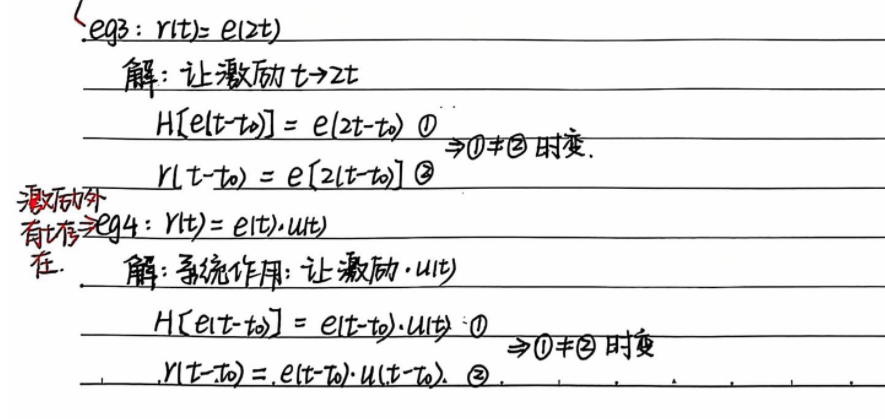 eg3: r(t)= e(2t)
解: 让激励 t→2t
H[e(t-t₀)] = e(2t-t₀) ①
⇒①≠② 时变.
r(t-t₀) = e[2(t-t₀)] ②
激励外
有t存⇒
在.
eg4: r(t)=e(t)·u(t)
解: 系统作用: 让激励·u(t)
H[e(t-t₀)] = e(t-t₀)·u(t) ①
⇒①≠② 时变
r(t-t₀) = e(t-t₀)·u(t-t₀). ②